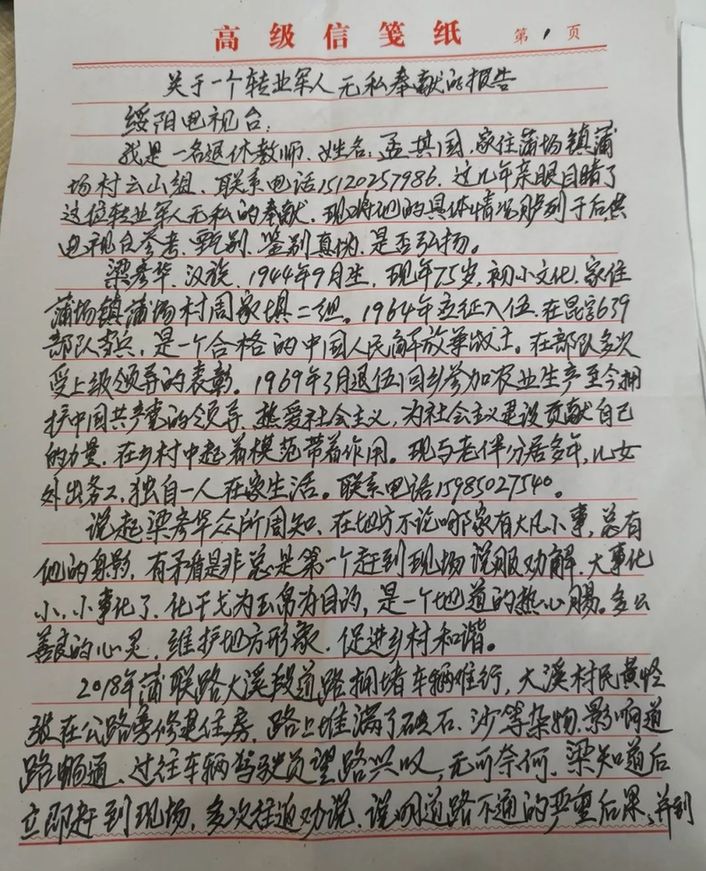 高级信笺纸 第1页
关于一个转业军人无私奉献的报告
绥阳电视台:
我是一名退休教师、姓名:孟其国、家住蒲场镇蒲
场村云山组、联系电话15120257986、这几年亲眼目睹了
这位转业军人无私的奉献、现将他的具体情况胪列于后,供
电视台参考、甄别、鉴别真伪、是否弘扬。
梁彦华、汉族、1944年9月生,现年75岁,初小文化,家住
蒲场镇蒲场村周家填二组。1964年应征入伍、在昆字639
部队当兵,是一个合格的中国人民解放军战士。在部队多次
受上级领导的表彰。1969年3月退伍回乡参加农业生产至今拥
护中国共产党的领导、热爱社会主义,为社会主义建设贡献自己
的力量、在乡村中起着模范带着作用。现与老伴分居多年,儿女
外出务工,独自一人在家生活。联系电话15985027540。
说起梁彦华众所周知、在地方不论哪家有大凡小事,总有
他的身影,有矛盾是非总是第一个赶到现场说服劝解、大事化
小、小事化了、化干戈为玉帛为目的,是一个地道的热心肠。
善良的心灵,维护地方形象、促进乡村和谐。
2018年蒲联路大溪段道路拥堵车辆难行,大溪村民黄怪
张在公路旁修建住房、路上堆满了砂石、沙等杂物、影响道
路畅通、过往车辆驾驶员望路兴叹,无可奈何、梁知道后
立即赶到现场、多次往返劝说、说明道路不通的严重后果、并到